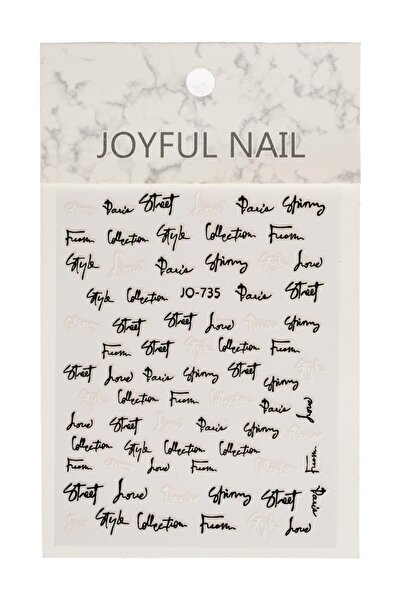 JOYFUL NAIL
Spinny Paris Street Love Paris Spinny
From Collection Style Collection From
Style Love Paris Spinny Style Love
Style Collection JO-735 Paris Street
Street Street Love Spinny
From Street Collection Style
Street Love Paris Spinny Street Spinny
Style Collection From Paris Love
Love Street Paris Spinny
Collection Style Collection Collection
From Love From From
Street Love Paris Spinny Street Paris
Love Style Collection From Style Love